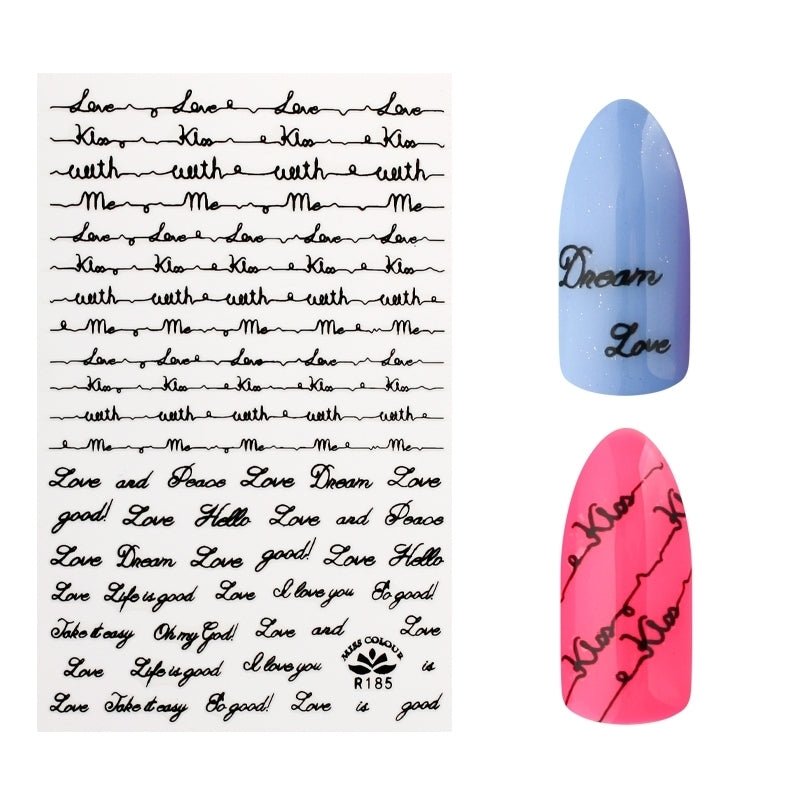 Love Love Love Love
Kiss Kiss Kiss Kiss
with with with with
Me Me Me Me
Love Love Love Love Love
Kiss Kiss Kiss Kiss Kiss
with with with with with
Me Me Me Me Me
Love Love Love Love Love
Kiss Kiss Kiss Kiss Kiss
with with with with with
Me Me Me Me Me
Love and Peace Love Dream Love
good! Love Hello Love and Peace
Love Dream Love good! Love Hello
Love Life is good Love I love you So good!
Take it easy Oh my God! Love and Love
MISS COLOUR
Love Life is good I love you is
R185
Love Take it easy So good! Love is good
Dream
Love
Kiss
Kiss
Kiss
Kiss